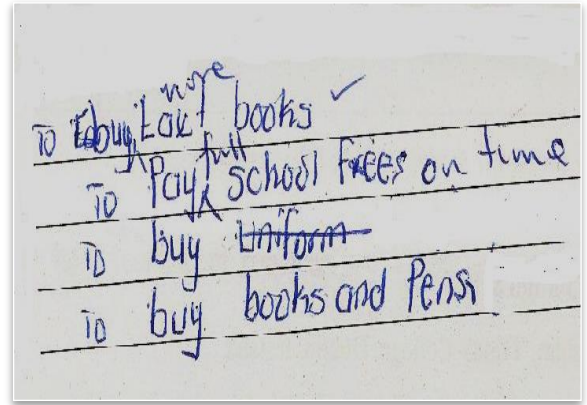 To buy more text books ✓
To Pay full school frees on time
To buy uniform
To buy books and Pens